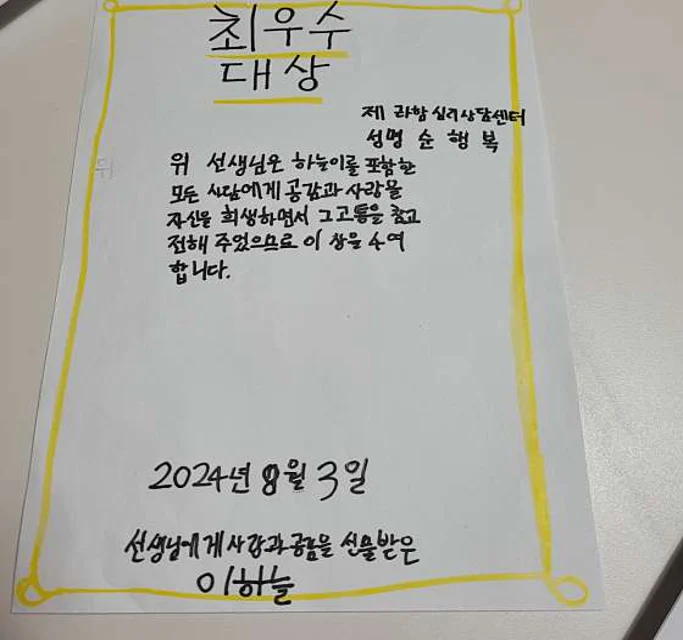 최우수
대상
제 라함 심리상담센터
성명 순 행 복
위 선생님은 하늘이를 포함한
모든 사람에게 공감과 사랑을
자신을 희생하면서 그고통을 참고
전해 주었으므로 이 상을 수여
합니다.
2024년 8월 3일
선생님에게 사랑과 공감을 선물받은
이하늘